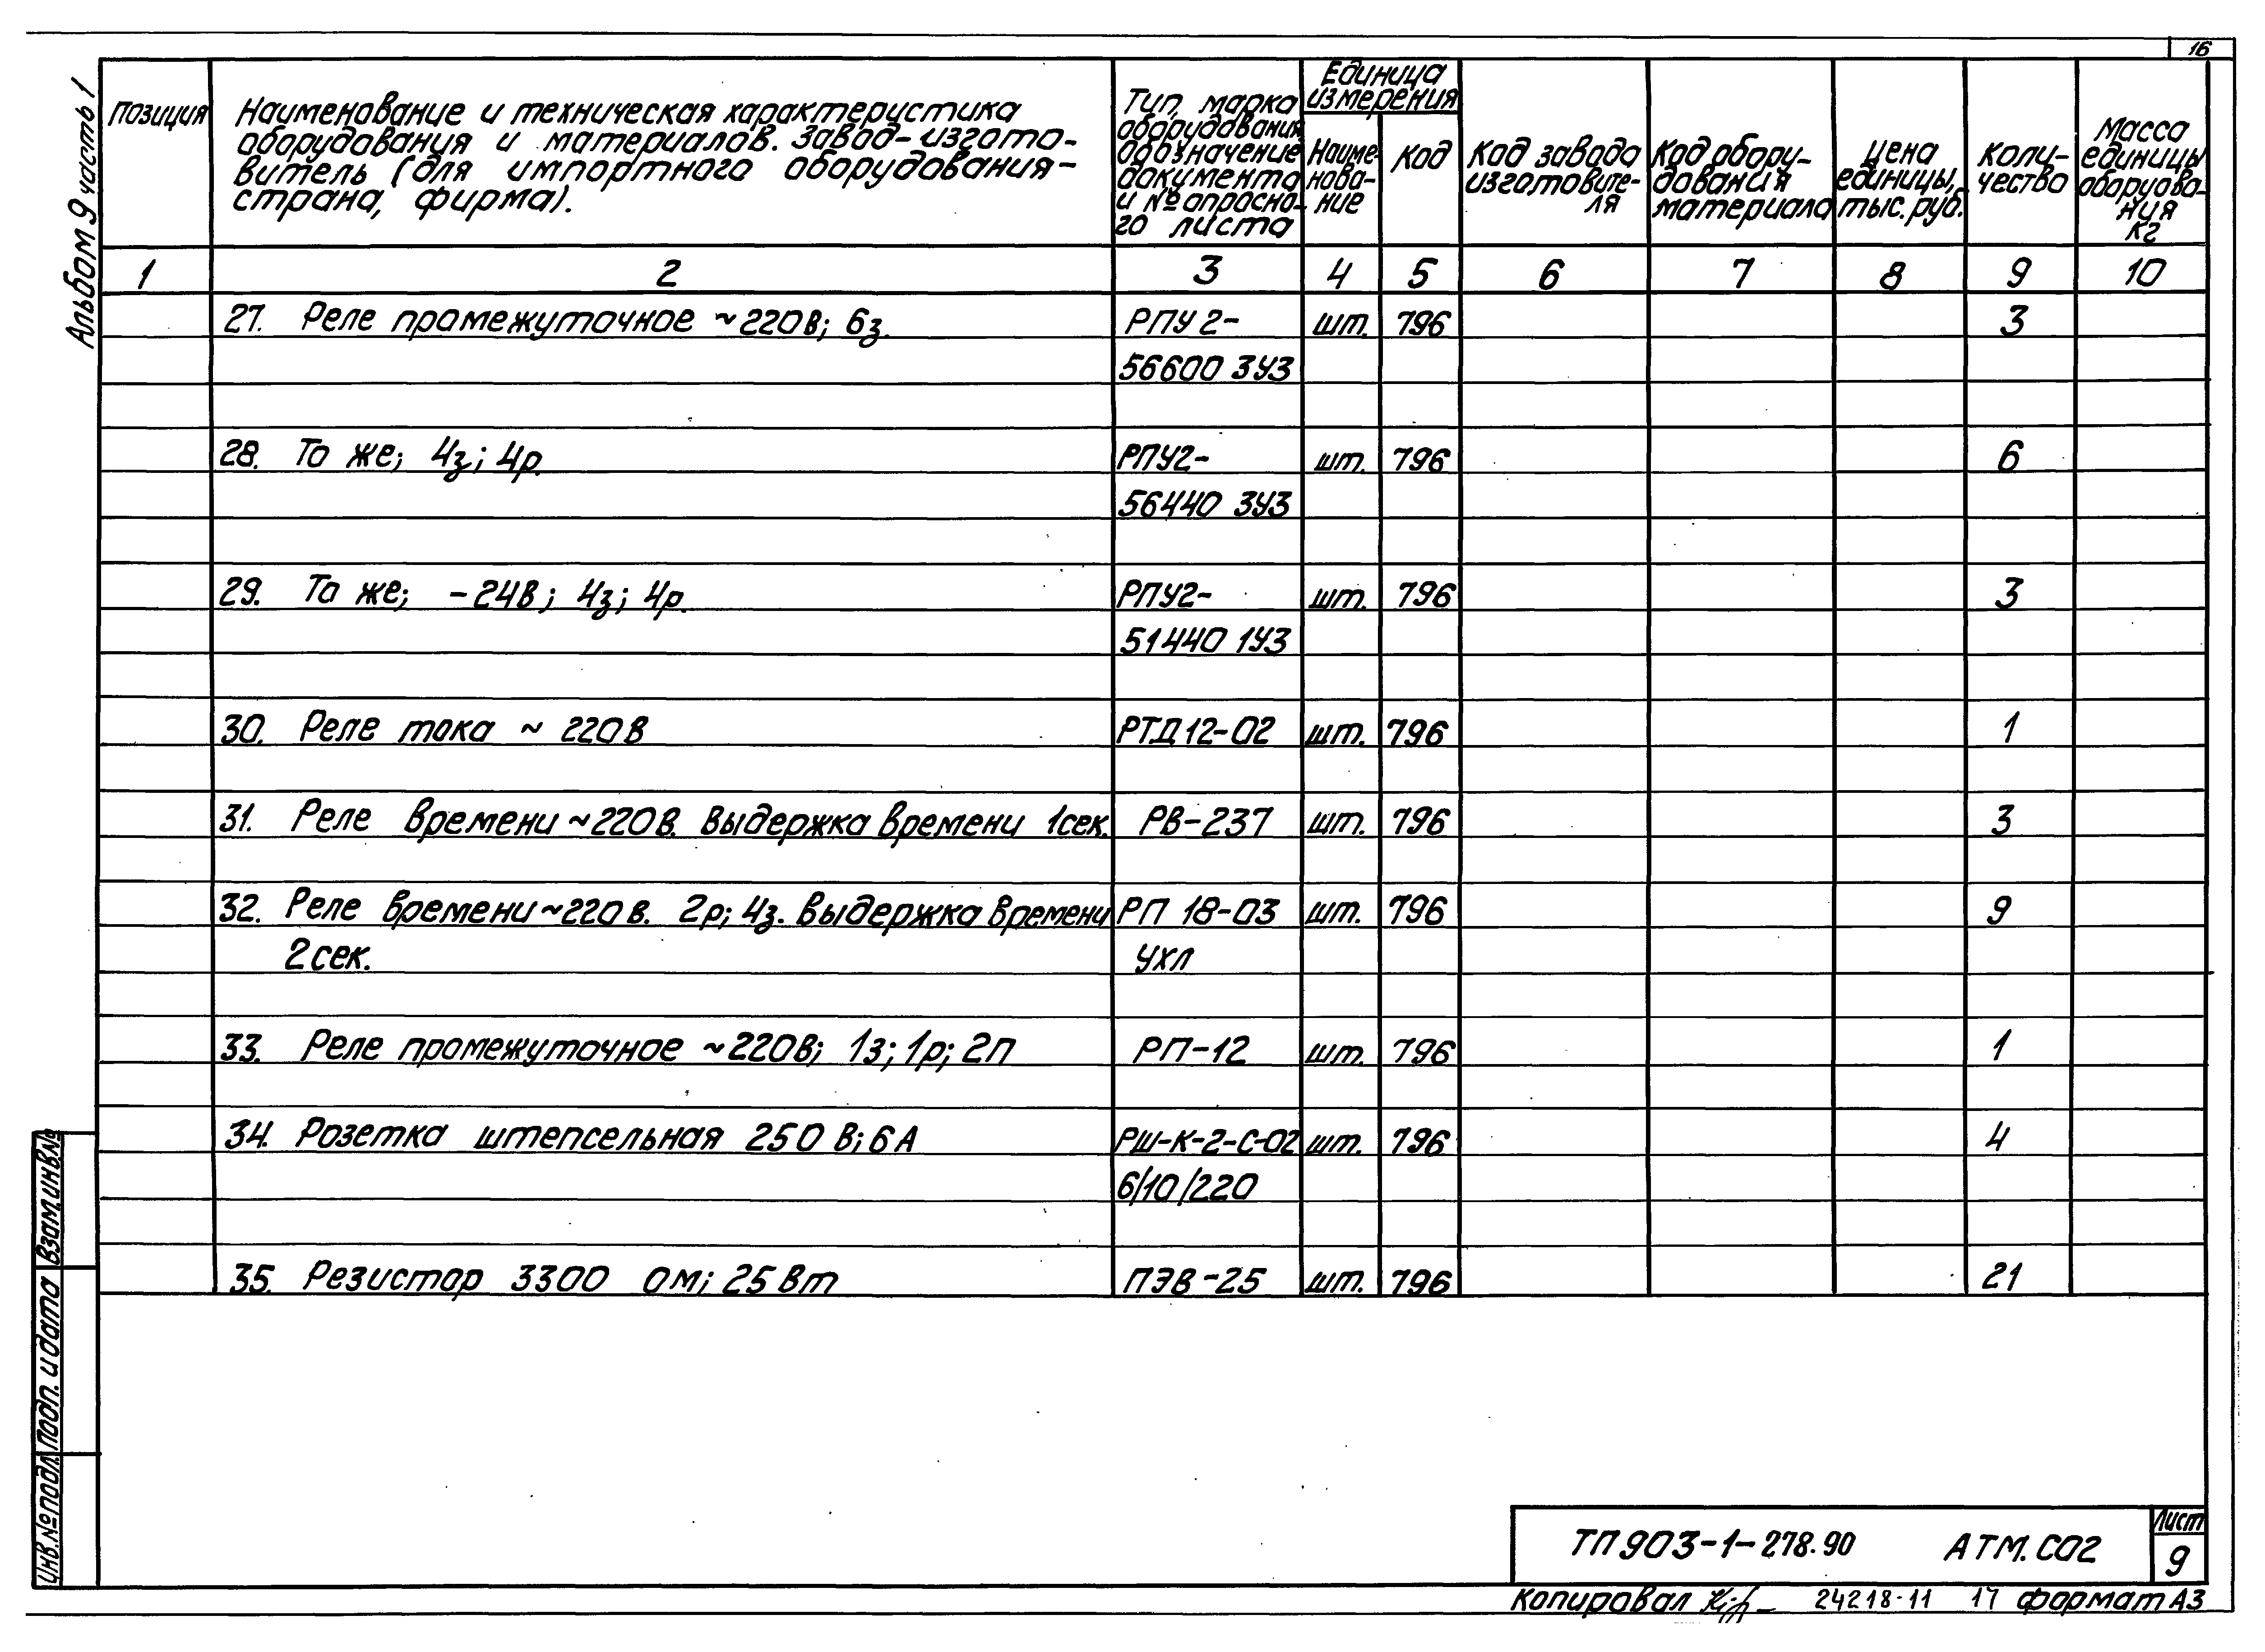 16
Альбом 9 часть 1
Позиция
Наименование и техническая характеристика
оборудования и материалов. Завод-изгото-
витель (для импортного оборудования-
страна, фирма).
Тип, марка
оборудования,
обозначение
документа
и № опросно-
го листа
Единица
измерения
Наиме-
нова-
ние
Код
Код завода
изготовите-
ля
Код обору-
дования
материала
Цена
единицы,
тыс. руб.
Коли-
чество
Масса
единицы
оборудова-
ния
кг
1 2 3 4 5 6 7 8 9 10
27. Реле промежуточное ~220в; 6з. РПУ 2- шт. 796 3
56600 3У3
28. То же; 4з; 4р. РПУ2- шт. 796 6
56440 3У3
29. То же; -24В; 4з; 4р. РПУ2- шт. 796 3
51440 1У3
30. Реле тока ~ 220В РТД12-02 шт. 796 1
31. Реле времени ~220в. Выдержка времени 1сек. РВ-237 шт. 796 3
32. Реле времени ~220 в. 2р; 4з. Выдержка времени РП 18-03 шт. 796 9
2 сек. УХЛ
33. Реле промежуточное ~220В; 1з; 1р; 2п РП-12 шт. 796 1
34. Розетка штепсельная 250 В; 6 А РШ-К-2-С-02 шт. 796 4
6/10/220
35. Резистор 3300 Ом; 25 Вт ПЭВ-25 шт. 796 21
Взам.инв.№
Подп. и дата
Инв.№ подл.
ТП 903-1-278.90 АТМ.С02
Лист
9
Копировал 24218-11 17 формат А3